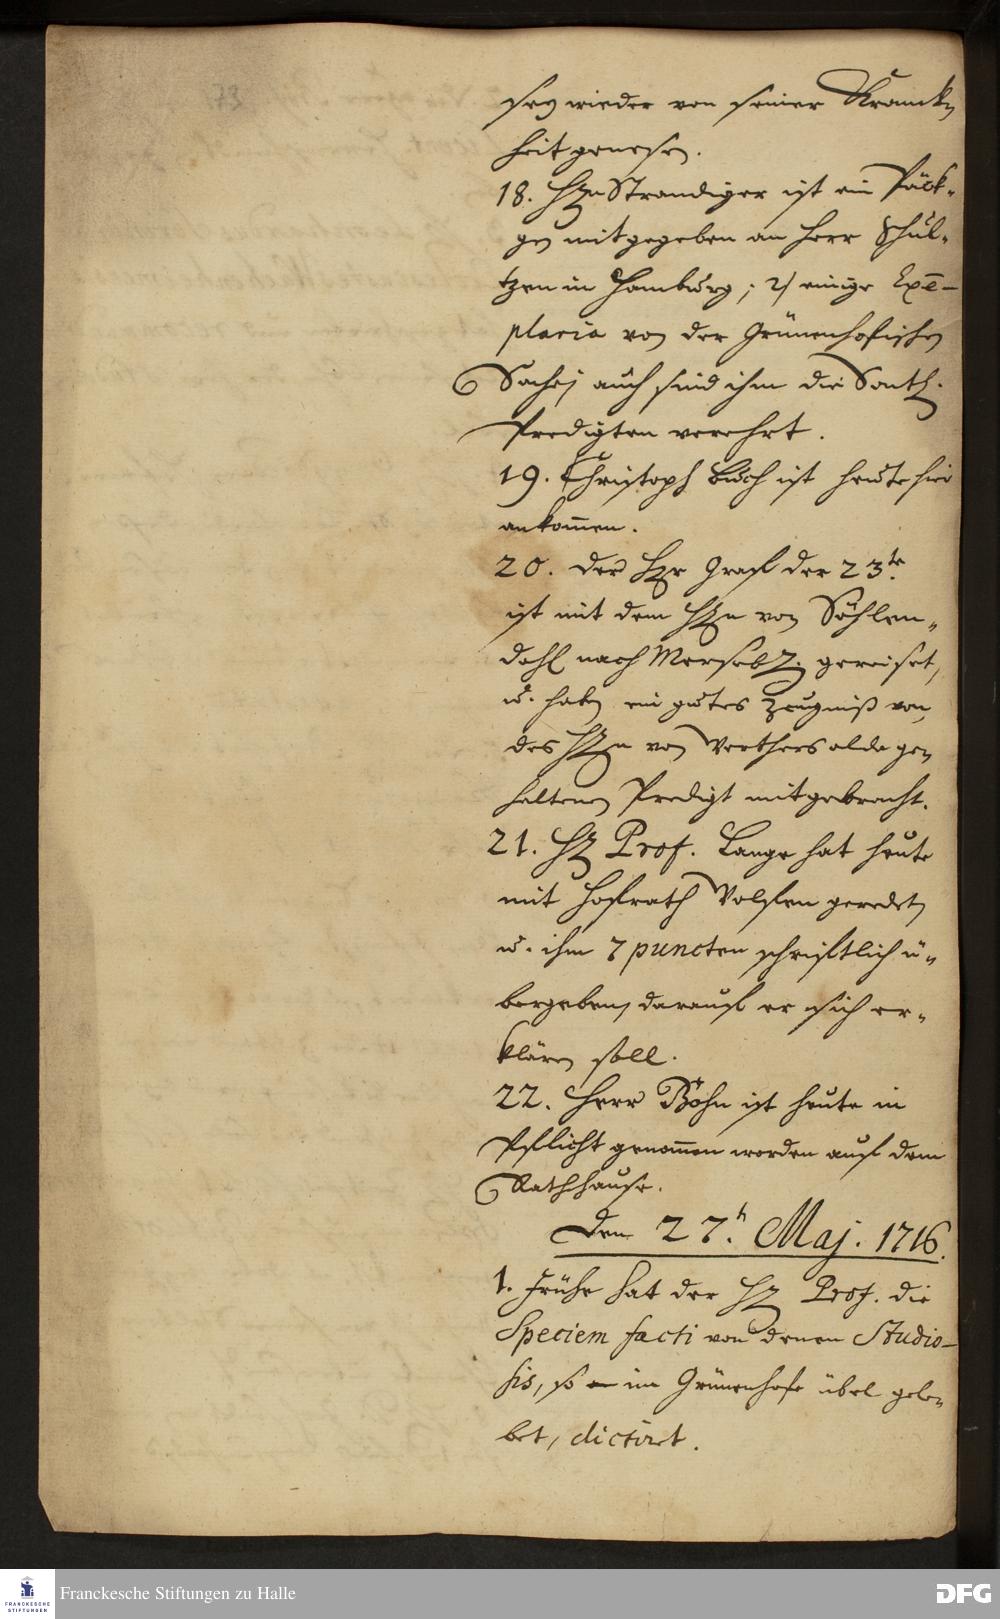 sey wieder von seiner Kranck-
heit genesen.
18. HEn Strandiger ist ein Päck-
gen mitgegeben an Herr Schul-
tzen in Hamburg; 2) einige Exē-
plaria von der Grünenhofischen
Sache; auch sind ihm die Sonth.
Predigten verehrt.
19. Christoph Buch ist heute hier
ankom̄en.
20. Der HEr Graf der 23te.
ist mit dem HEn von Söhlen-
dahl nach Merseb. gereiset,
u. haben ein gutes Zeugniß von
des HEn von Werthers alda ge-
haltenen Predigt mitgebracht.
21. HE Prof. Lange hat heute
mit Hofrath Wolffen geredet,
u. ihm 7 puncten schriftlich ü-
bergeben, darauf er sich er-
klären soll.
22. Herr Böhn ist heute in
Pflicht genom̄en worden auf dem
Rathhause.
Den 27.t Maj. 1716.
1. Frühe hat der HE Prof. die
Speciem facti von denen Studio-
sis, so im Grünenhofe übel gele-
bet, dictiret.
Franckesche Stiftungen zu Halle
DFG
FRANCKESCHE
STIFTUNGEN